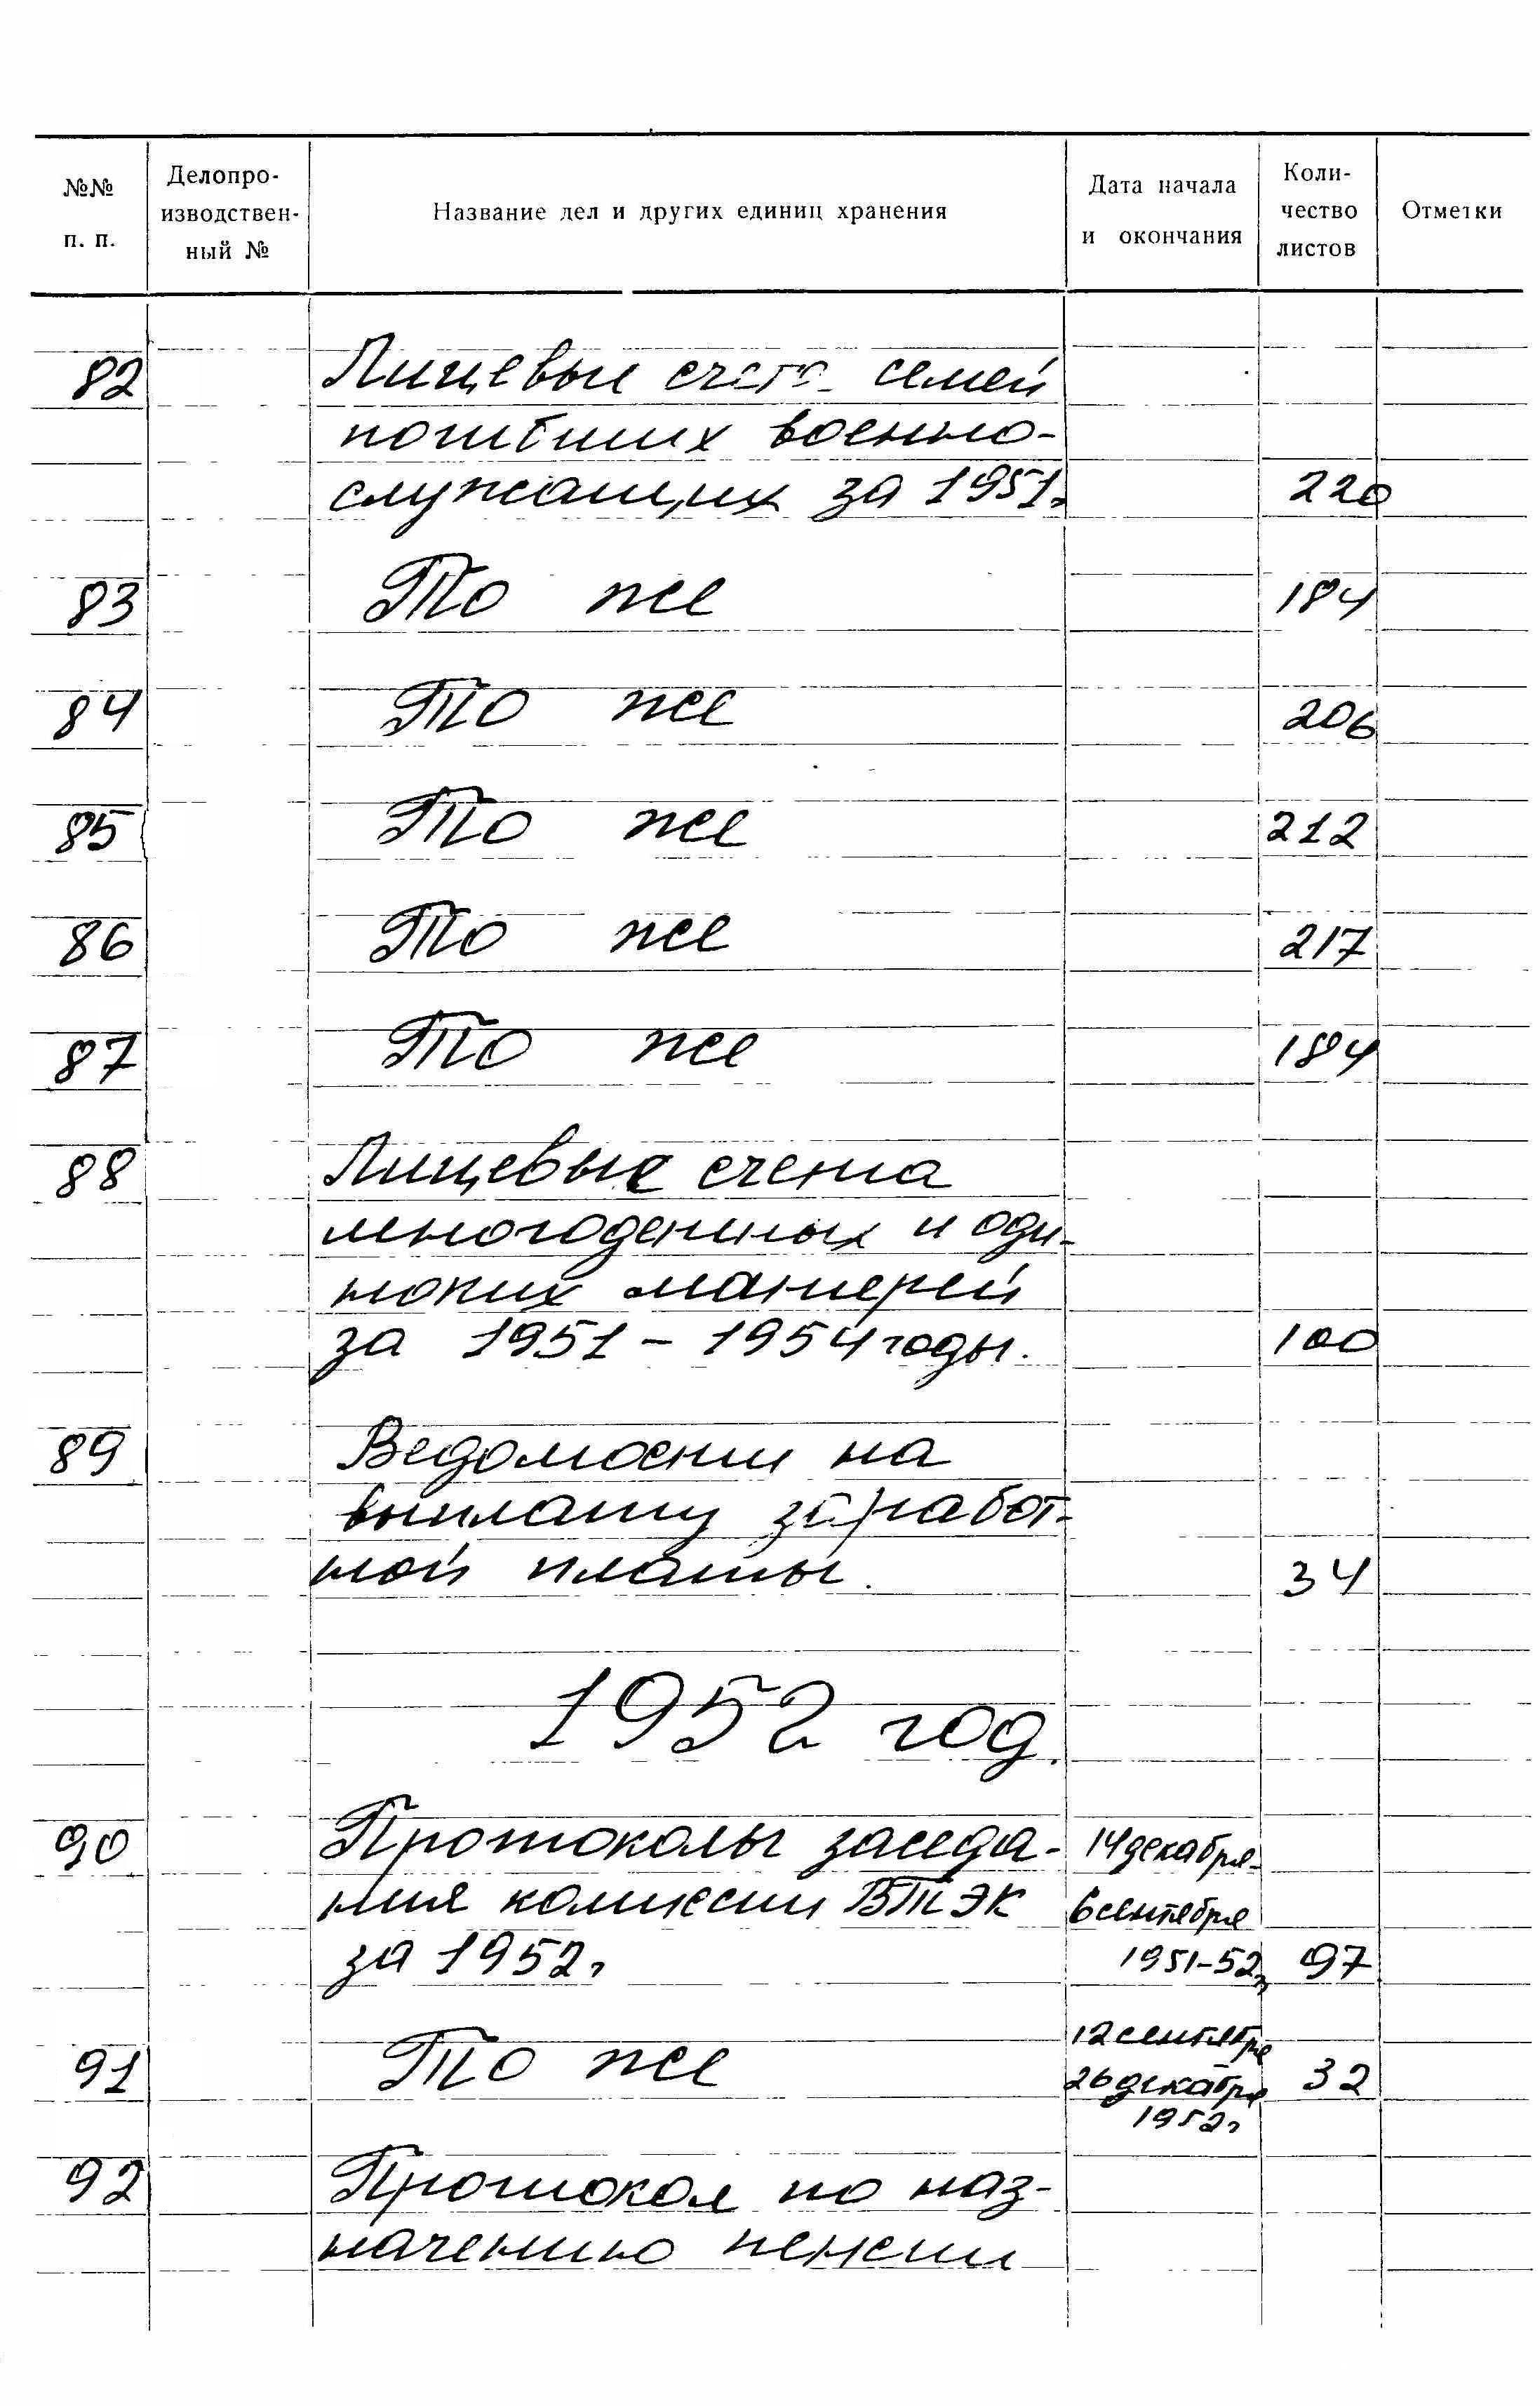 №№ п. п.
Делопро-
изводствен-
ный №
Название дел и других единиц хранения
Дата начала
и окончания
Коли-
чество
листов
Отметки
82 Лицевые счета семей
погибших военно-
служащих за 1951г. 220
83 То же 184
84 То же 206
85 То же 212
86 То же 217
87 То же 184
88 Лицевые счета
многодетных и оди-
ноких матерей
за 1951 - 1954 годы. 100
89 Ведомости на
выплату заработ-
ной платы. 34
1952 год.
90 Протоколы заседа- 14 декабря-
ния комиссии ВТЭК 6 сентября
за 1952г 1951-52г 97
12 сентября
91 То же 26 декабря 32
1952г
92 Протокол по наз-
начению пенсии